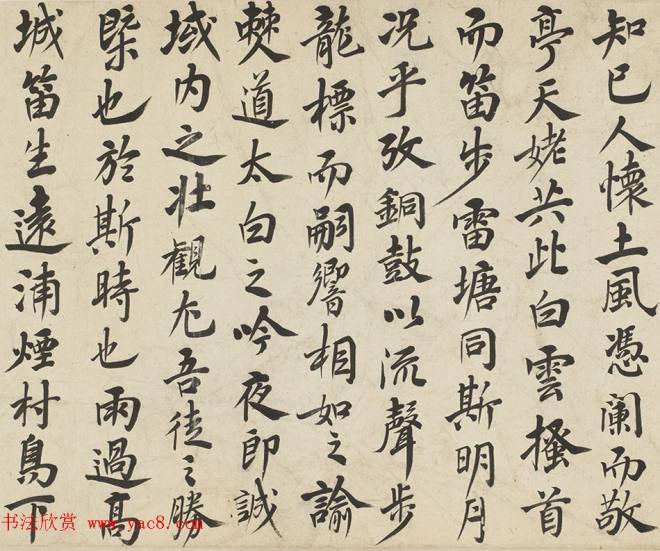 知己人懷土風憑闌而敬
亭天姥共此白雲搔首
而笛步雷塘同斯明月
況乎攷銅鼓以流聲步
龍標而嗣響相如之諭
僰道太白之吟夜郎誠
域内之壯觀尤吾徒之勝
槩也於斯時也雨過髙
城笛生遠浦煙村鳥下
书法欣赏 www.yac8.com